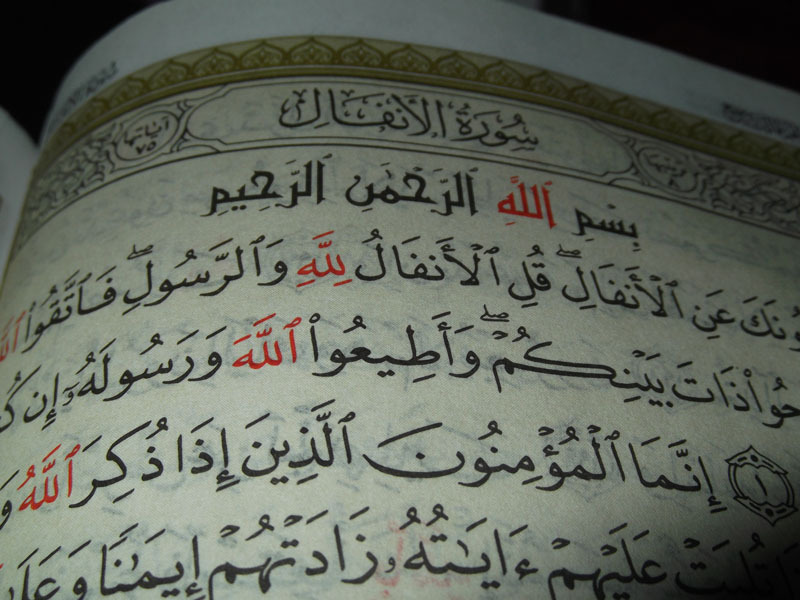 سُورَةُ الأَنفَالِ
آيَاتُهَا ٧٥
بِسْمِ ٱللَّهِ ٱلرَّحْمَٰنِ ٱلرَّحِيمِ
عَنِ ٱلْأَنفَالِۖ قُلِ ٱلْأَنفَالُ لِلَّهِ وَٱلرَّسُولِۖ فَٱتَّقُوا۟
ذَاتَ بَيْنِكُمْۖ وَأَطِيعُوا۟ ٱللَّهَ وَرَسُولَهُۥٓ إِن
١ إِنَّمَا ٱلْمُؤْمِنُونَ ٱلَّذِينَ إِذَا ذُكِرَ ٱللَّهُ
عَلَيْهِمْ ءَايَٰتُهُۥ زَادَتْهُمْ إِيمَٰنًا